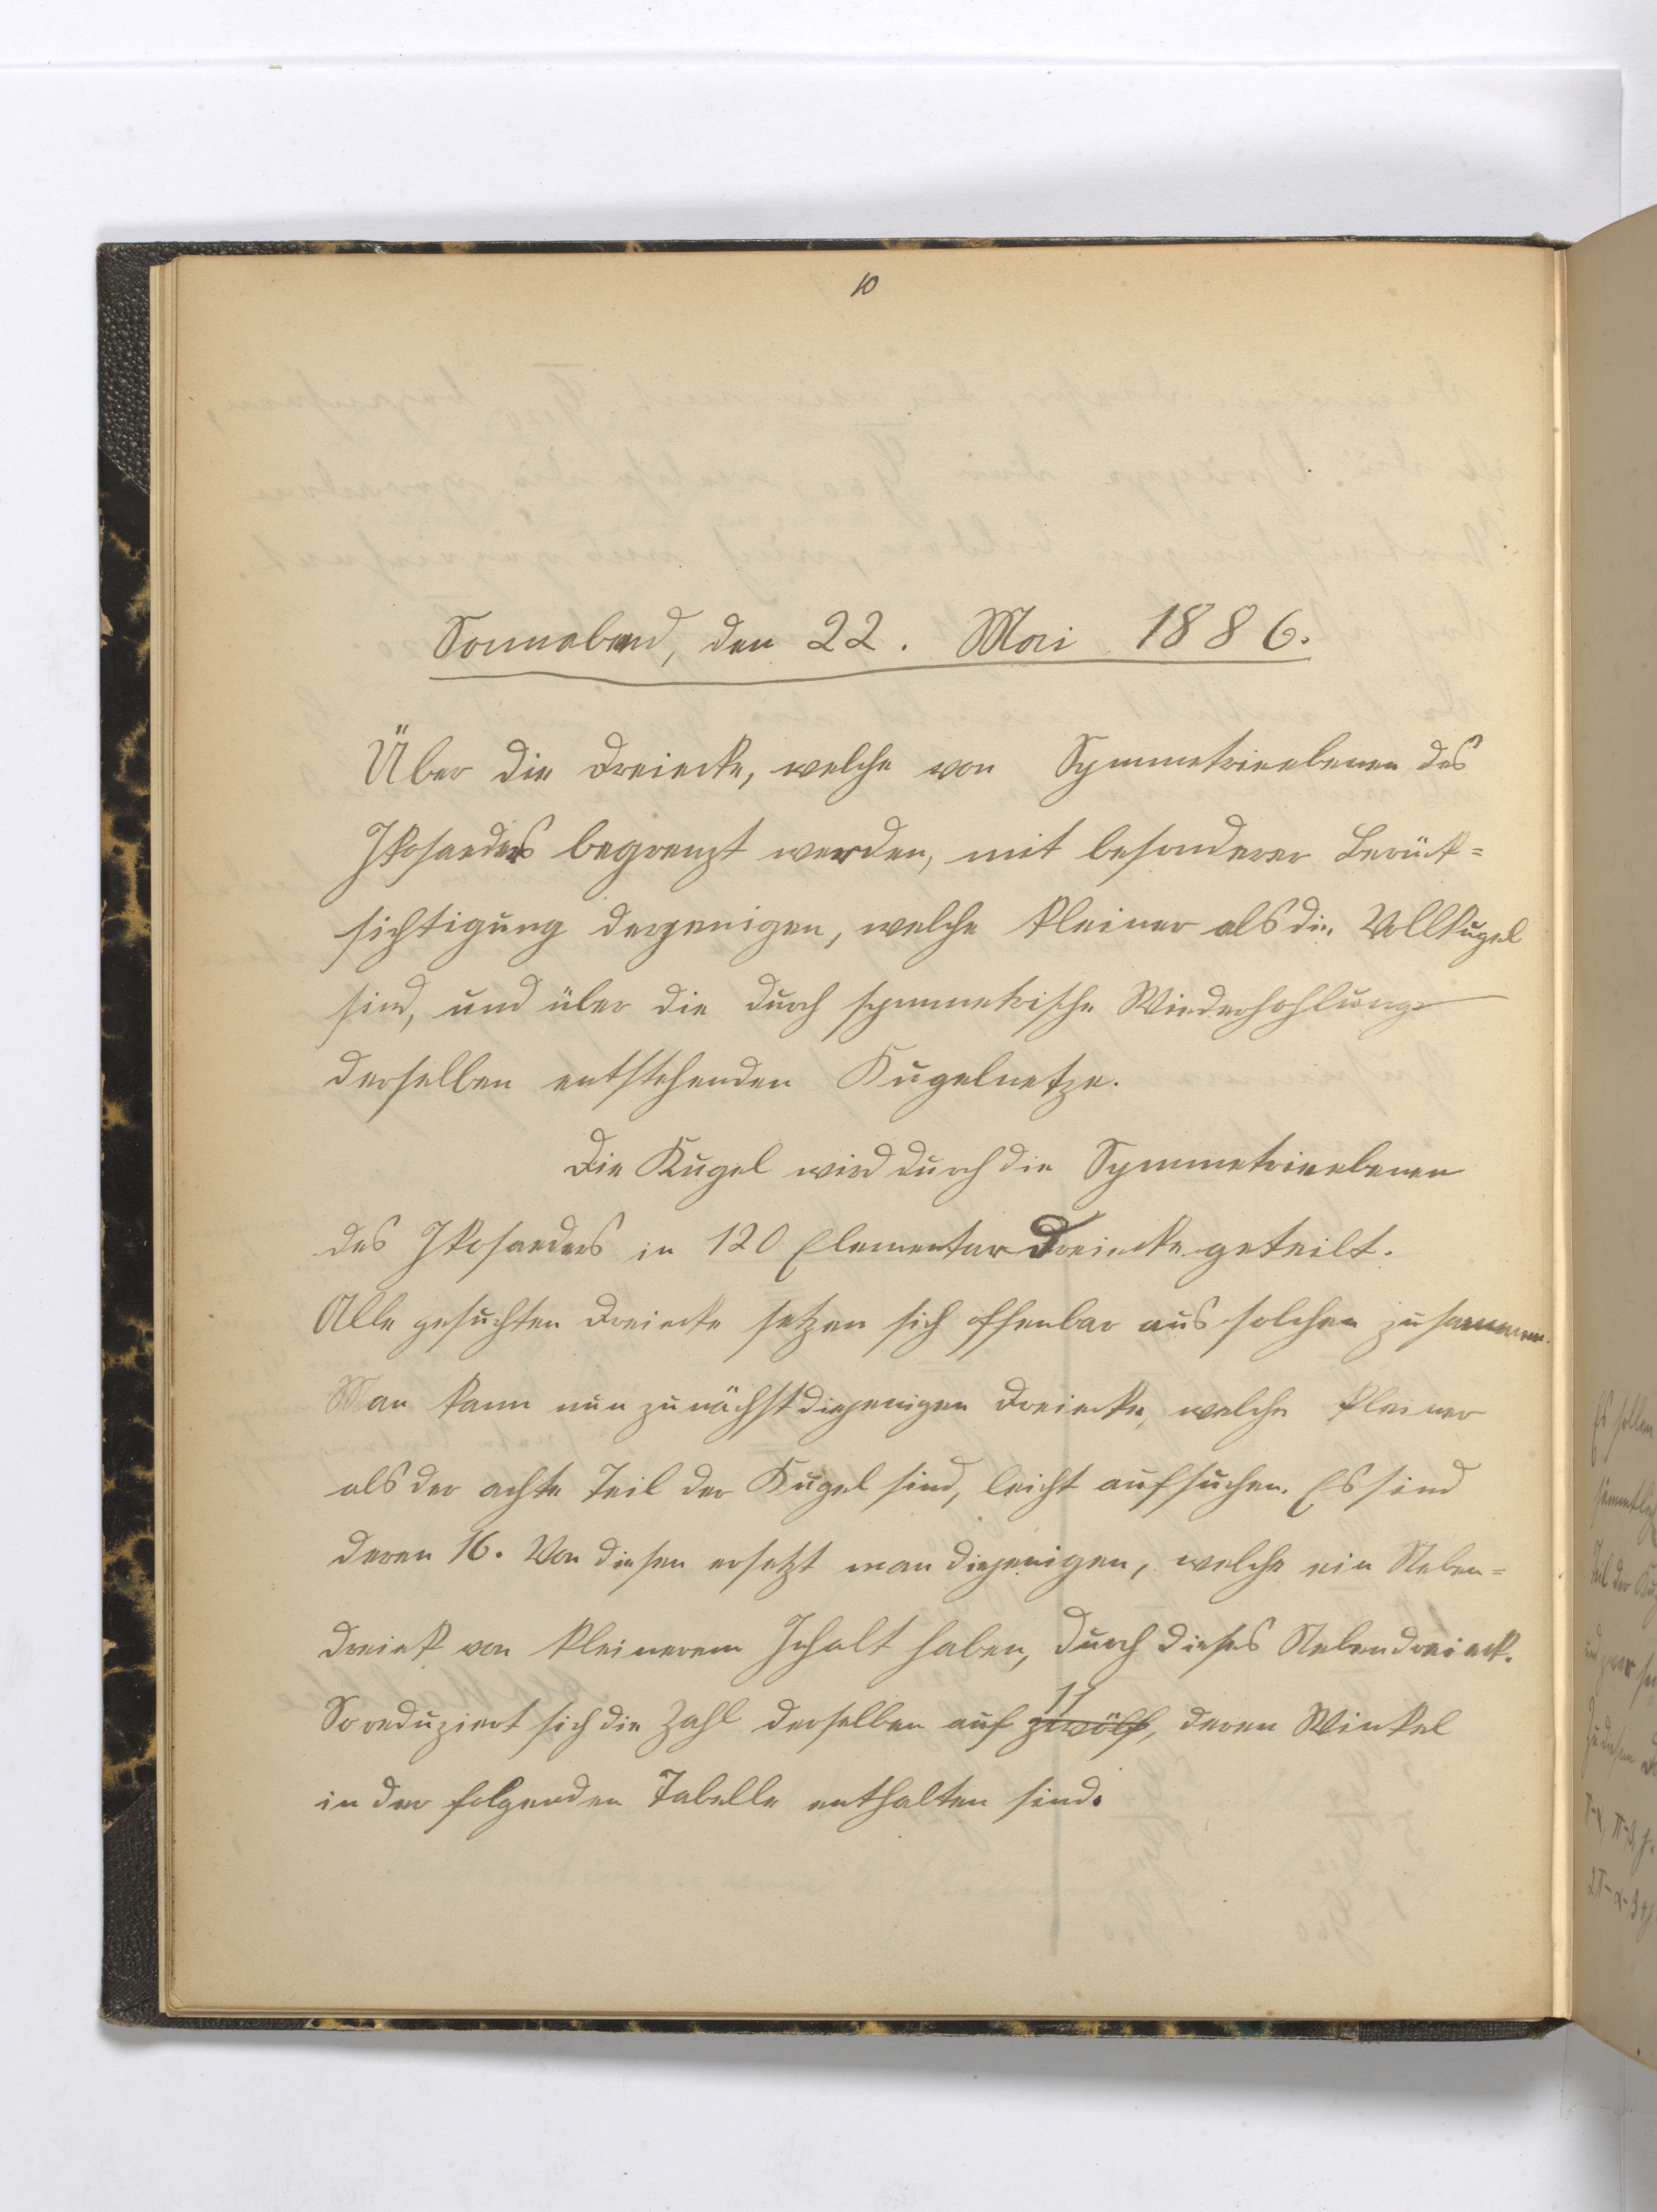 10
Sonnabend, den 22. Mai 1886.
Über die Dreiecke, welche von Symmetrieebenen des
Ikosaeders begrenzt werden, mit besonderer Berück=
sichtigung derjenigen, welche kleiner als die Vollkugel
sind, und über die durch symmetrische Wiederhohlung
derselben entstehenden Kugelnetze.
Die Kugel wird durch die Symmetrieebenen
des Ikosaeders in 120 Elementar Dreiecke geteilt.
Alle gesuchten Dreiecke setzen sich offenbar aus solchen zusammen.
Man kann nun zunächst diejenigen Dreiecke, welche kleiner
als der achte Teil der Kugel sind, leicht aufsuchen. Es sind
deren 16. Von diesen ersetzt man diejenigen, welche ein Neben=
dreieck von kleinerem Inhalt haben, durch dieses Nebendreieck.
So reduziert sich die Zahl derselben auf zwölf 11, deren Winkel
in der folgenden Tabelle enthalten sind.
Es sollen
sämmtlich
Teil der Ku
und zwar
Zu diesem